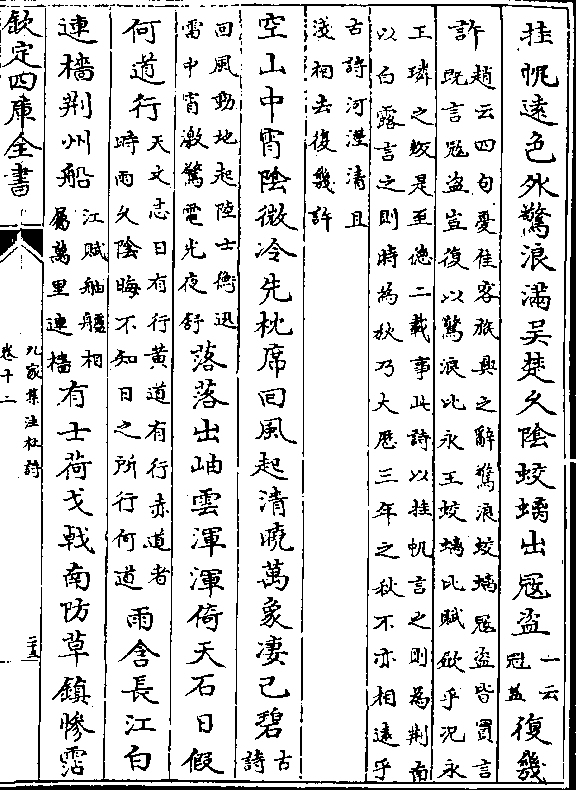 挂帆遠色外驚浪滿吳楚久陰蛟螭出寇盗一云寇盜復幾
許趙云四句憂徃客旅興之辭驚浪蛟螭寇盗皆實言
既言寇盗豈復以驚浪比永王蛟螭比賊欤乎况永
王璘之叛是至德二載事此詩以挂帆言之則為荆南
以白露言之則時為秋乃大厯三年之秋不亦相遠乎
古詩河漢清且
淺相去復幾許
空山中宵陰微冷先枕席回風起清曉萬象凄已碧古詩
回風動地起陸士衡迅
雷中宵激驚電光夜舒
落落出岫雲渾渾倚天石日假
何道行天文志日有行黄道有行赤道者
時雨久陰晦不知日之所行何道
雨含長江白
連檣荆州船江賦舳艫相
屬萬里連檣
有士荷戈戟南防草鎮慘霑
欽定四庫全書
九家集注杜詩
卷十二